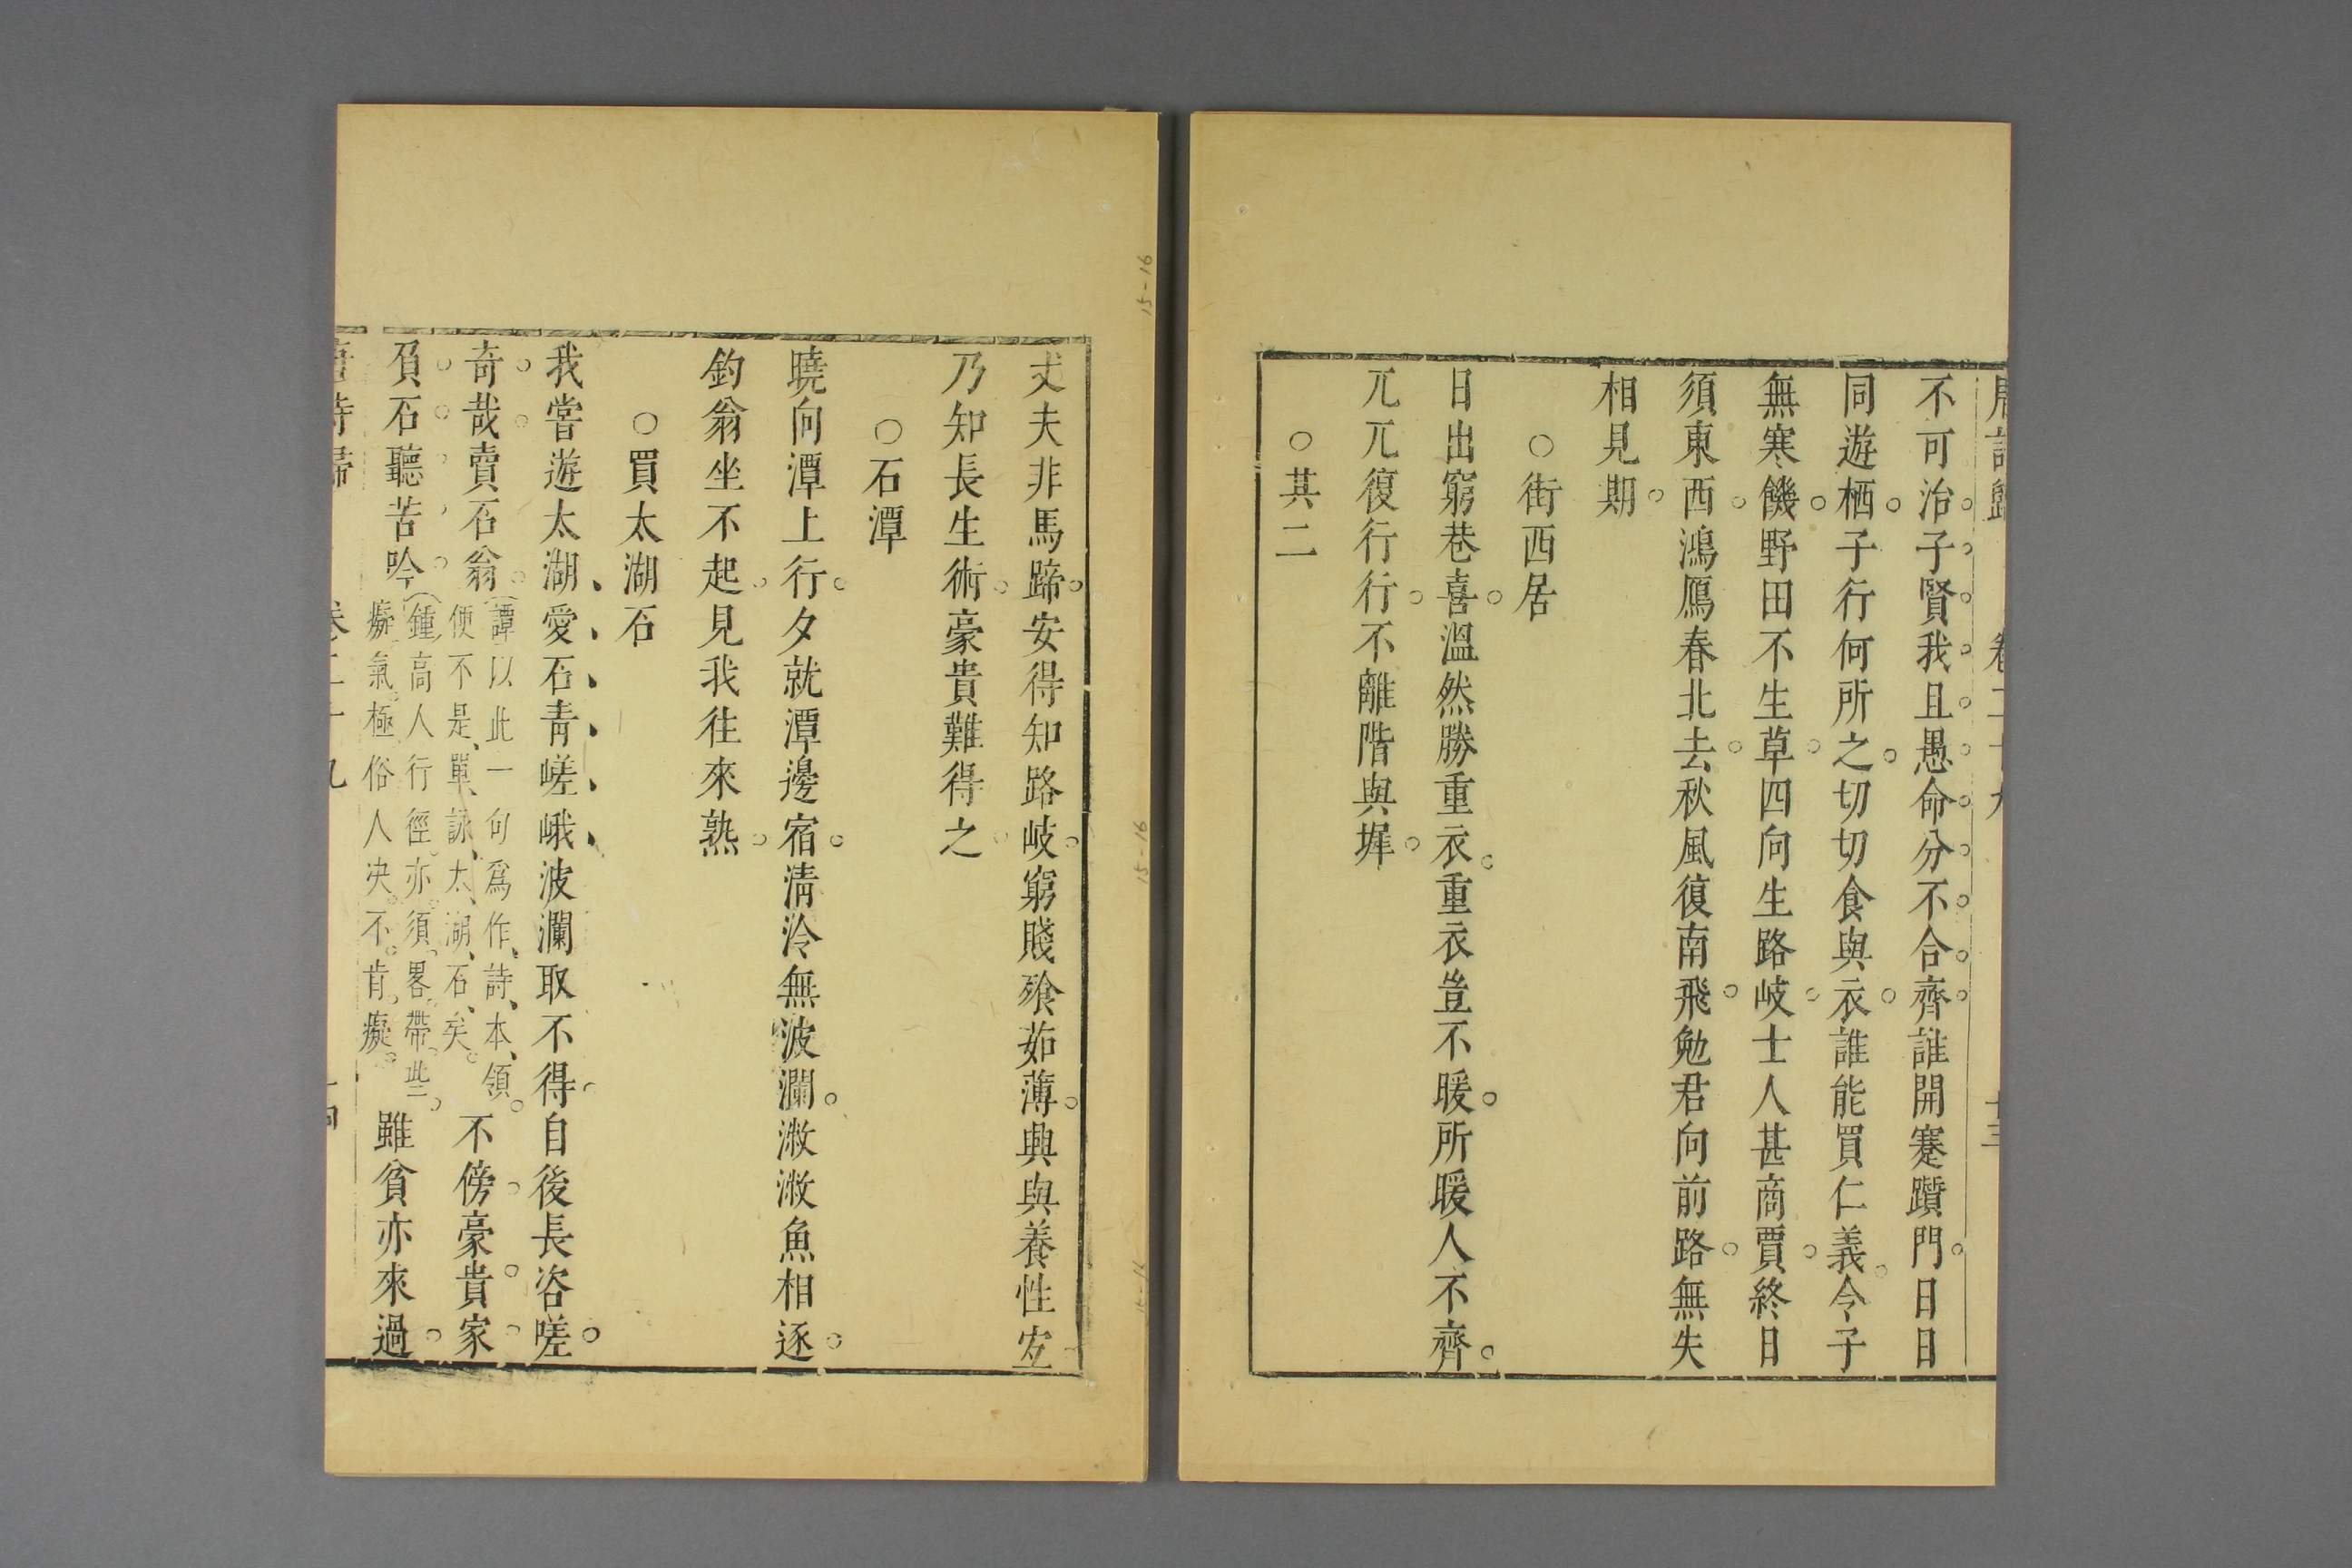 不可治子賢我且愚命分不合齊誰開蹇躓門日日
同遊栖子行何所之切切食與衣誰能買仁義令子
無寒饑野田不生草四向生路岐士人甚商賈終日
須東西鴻鴈春北去秋風復南飛勉君向前路無失
相見期
○街西居
日出窮巷喜溫然勝重衣重衣豈不暖所暖人不齊
兀兀復行行不離階與墀
○其二
丈夫非馬蹄安得知路岐窮賤飱茹薄興與養性宜
乃知長生術豪貴難得之
○石潭
曉向潭上行夕就潭邊宿清泠無波瀾潎潎魚相逐
釣翁坐不起見我往來熟
○買太湖石
我嘗遊太湖愛石青嵯峨波瀾取不得自後長咨嗟
奇哉賣石翁
譚以此一句爲作詩本領
便不是單詠太湖石矣
不傍豪貴家
負石聽苦吟
鍾高人行徑亦須畧帶些
癡氣極俗人决不肯癡
雖貧亦來過